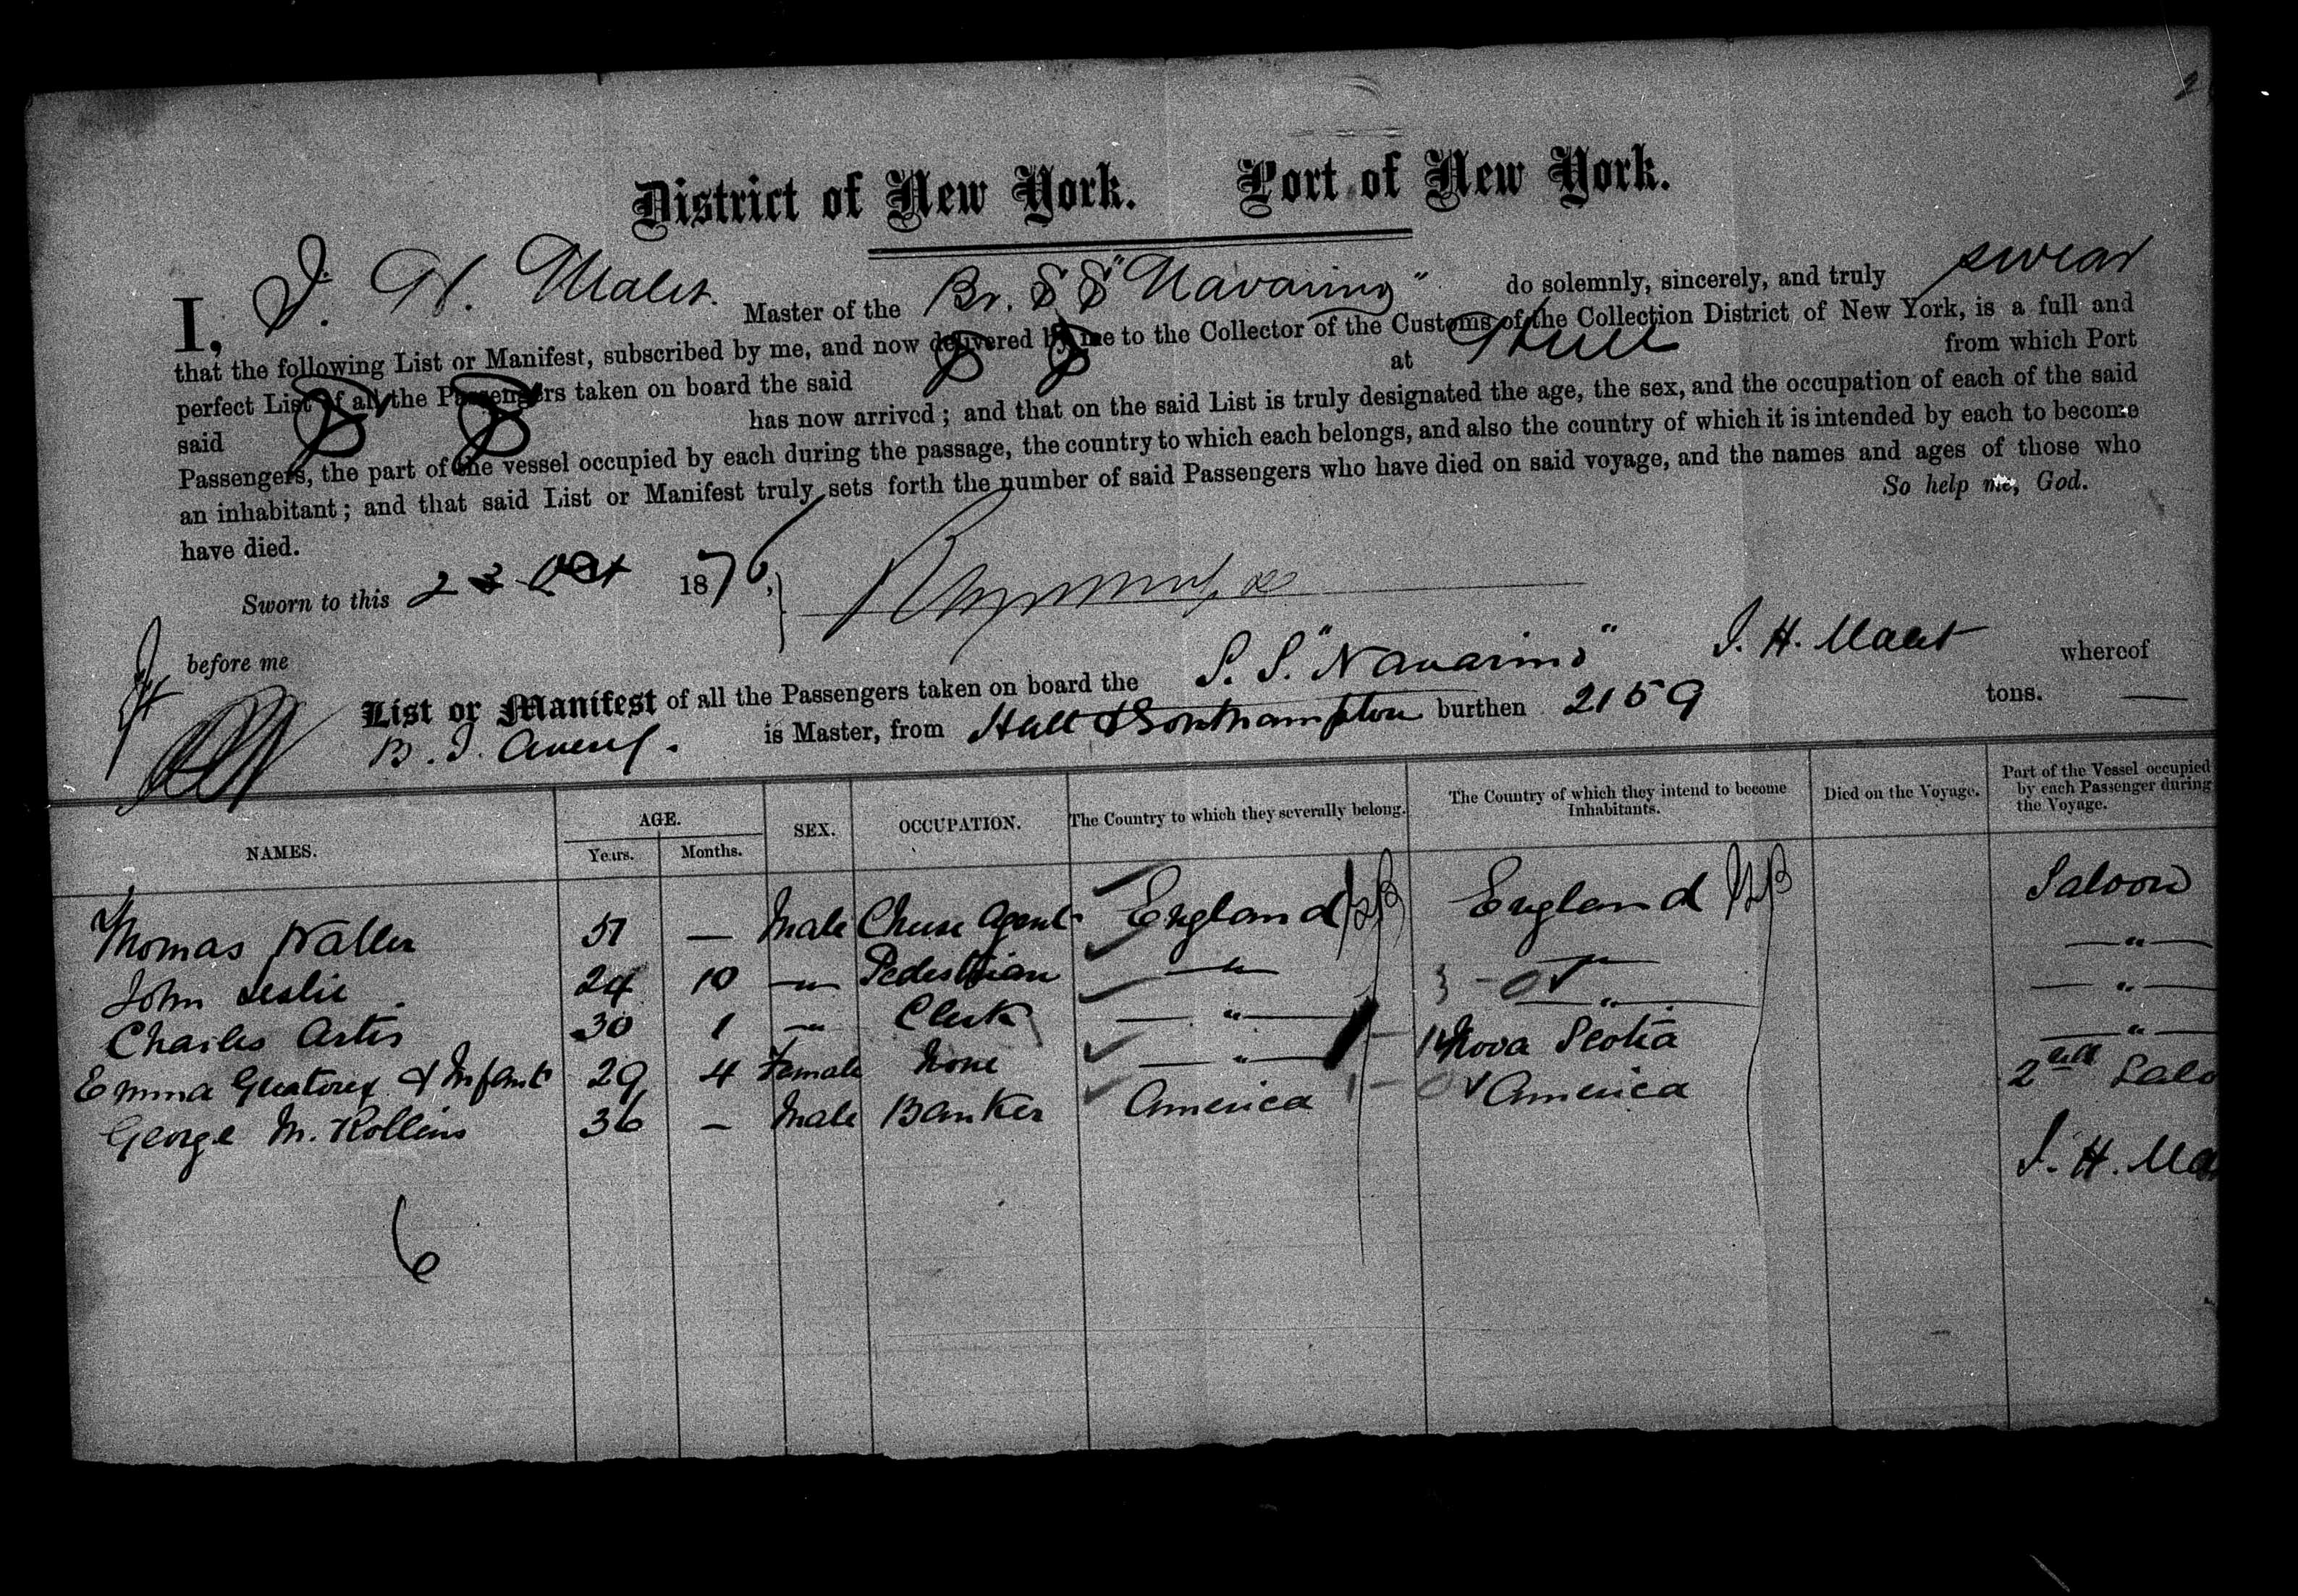 District of New York. Port of New York.
I, J. H. Malet. Master of the Br. SS "Navarino" do solemnly, sincerely, and truly swear
that the following List or Manifest, subscribed by me, and now delivered by me to the Collector of the Customs of the Collection District of New York, is a full and
perfect List of all the Passengers taken on board the said SS at Hull from which Port
said SS has now arrived; and that on the said List is truly designated the age, the sex, and the occupation of each of the said
Passengers, the part of the vessel occupied by each during the passage, the country to which each belongs, and also the country of which it is intended by each to become
an inhabitant; and that said List or Manifest truly sets forth the number of said Passengers who have died on said voyage, and the names and ages of those who
have died. So help me, God.
Sworn to this 23 Oct 1876,
before me
List or Manifest of all the Passengers taken on board the S.S. "Navarino" J. H. Malet whereof
is Master, from Hull & Southampton burthen 2159 tons.
NAMES. AGE. Years. Months. SEX. OCCUPATION. The Country to which they severally belong. The Country of which they intend to become Inhabitants. Died on the Voyage. Part of the Vessel occupied by each Passenger during the Voyage.
Thomas Waller 51 — Male Cheese Agent England England Saloon
John Leslie 24 10 —"— Pedestrian —"— —"— —"—
Charles 30 1 —"— Clerk —"— —"— —"—
Emma & Infant 29 4 Female None —"— Nova Scotia —"—
George M. Rollins 36 — Male Banker America America 2nd Saloo
J. H. Ma
6